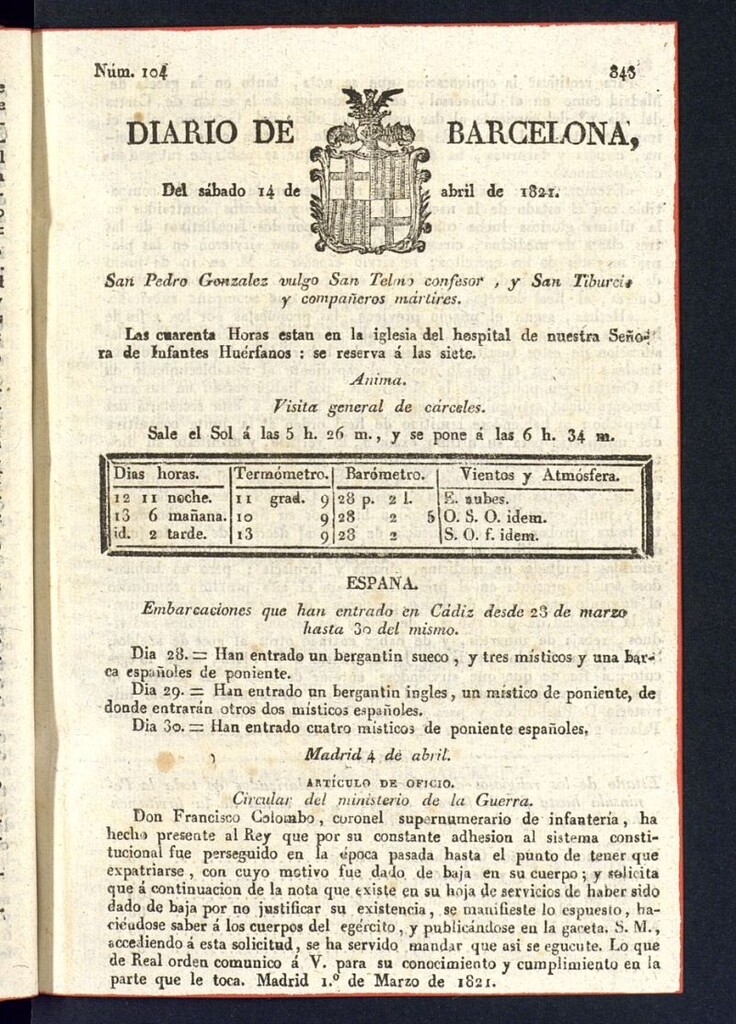 Núm. 104 343
DIARIO DE BARCELONA,
Del sábado 14 de abril de 1821.
San Pedro Gonzalez vulgo San Telmo confesor, y San Tiburcio
y compañeros mártires.
Las cuarenta Horas estan en la iglesia del hospital de nuestra Seño-
ra de Infantes Huérfanos : se reserva á las siete.
Anima.
Visita general de cárceles.
Sale el Sol á las 5 h. 26 m., y se pone á las 6 h. 34 m.
Dias horas. Termómetro. Barómetro. Vientos y Atmósfera.
12 11 noche. 11 grad. 9 28 p. 2 l. E. nubes.
13 6 mañana. 10 9 28 2 5 O. S. O. idem.
id. 2 tarde. 13 9 28 2 S. O. f. idem.
ESPAÑA.
Embarcaciones que han entrado en Cádiz desde 28 de marzo
hasta 30 del mismo.
Dia 28. = Han entrado un bergantin sueco, y tres místicos y una bar-
ca españoles de poniente.
Dia 29. = Han entrado un bergantin ingles, un místico de poniente, de
donde entrarán otros dos místicos españoles.
Dia 30. = Han entrado cuatro místicos de poniente españoles.
Madrid 4 de abril.
ARTÍCULO DE OFICIO.
Circular del ministerio de la Guerra.
Don Francisco Colombo, coronel supernumerario de infantería, ha
hecho presente al Rey que por su constante adhesion al sistema consti-
tucional fue perseguido en la época pasada hasta el punto de tener que
expatriarse, con cuyo motivo fue dado de baja en su cuerpo; y solicita
que á continuacion de la nota que existe en su hoja de servicios de haber sido
dado de baja por no justificar su existencia, se manifieste lo espuesto, ha-
ciéndose saber á los cuerpos del egército, y publicándose en la gaceta. S. M.,
accediendo á esta solicitud, se ha servido mandar que asi se egecute. Lo que
de Real orden comunico á V. para su conocimiento y cumplimiento en la
parte que le toca. Madrid 1.º de Marzo de 1821.